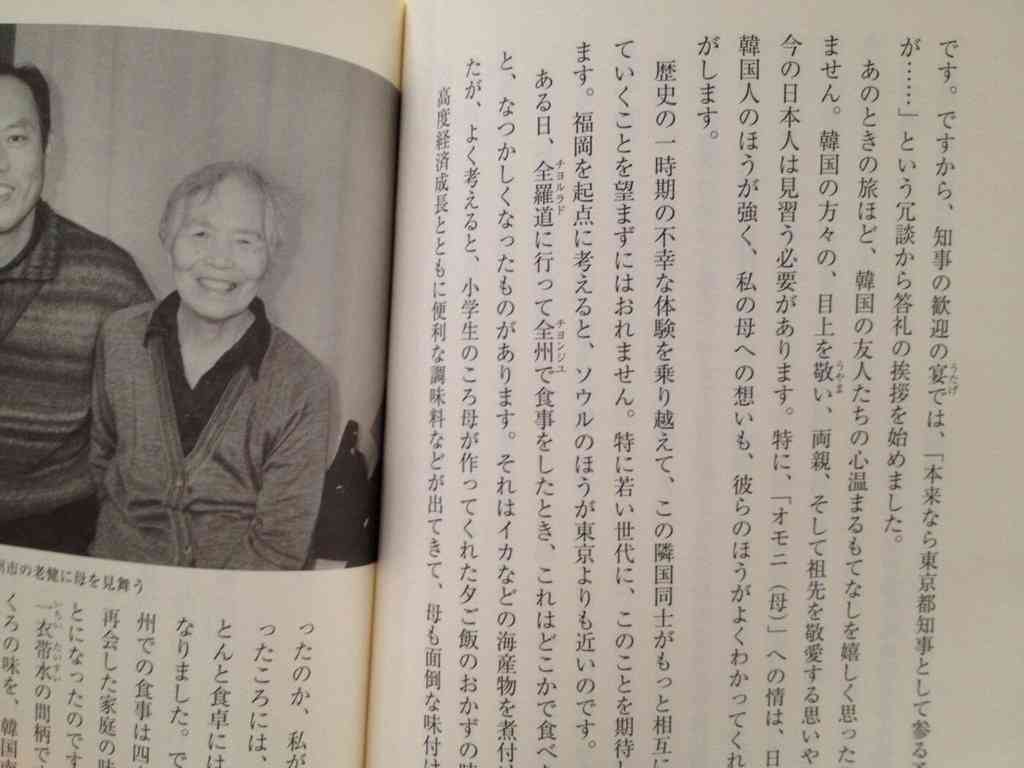 です。ですから、知事の歓迎の宴では、「本来なら東京都知事として参る
が……」という冗談から答礼の挨拶を始めました。
あのときの旅ほど、韓国の友人たちの心温まるもてなしを嬉しく思った
ません。韓国の方々の、目上を敬い、両親、そして祖先を敬愛する思いや
今の日本人は見習う必要があります。特に、「オモニ（母）」への情は、日
韓国人のほうが強く、私の母への想いも、彼らのほうがよくわかってくれ
がします。
歴史の一時期の不幸な体験を乗り越えて、この隣国同士がもっと相互に
ていくことを望まずにはおれません。特に若い世代に、このことを期待し
ます。福岡を起点に考えると、ソウルのほうが東京よりも近いのです。
ある日、全羅道に行って全州で食事をしたとき、これはどこかで食べた
と、なつかしくなったものがあります。それはイカなどの海産物を煮付け
たが、よく考えると、小学生のころ母が作ってくれた夕ご飯のおかずの味
高度経済成長とともに便利な調味料などが出てきて、母も面倒な味付け
市の老健に母を見舞う
ったのか、私が
ったころには、
とんと食卓には
なりました。で
州での食事は四
再会した家庭の味
とになったのです
一衣帯水の間柄で
くろの味を、韓国